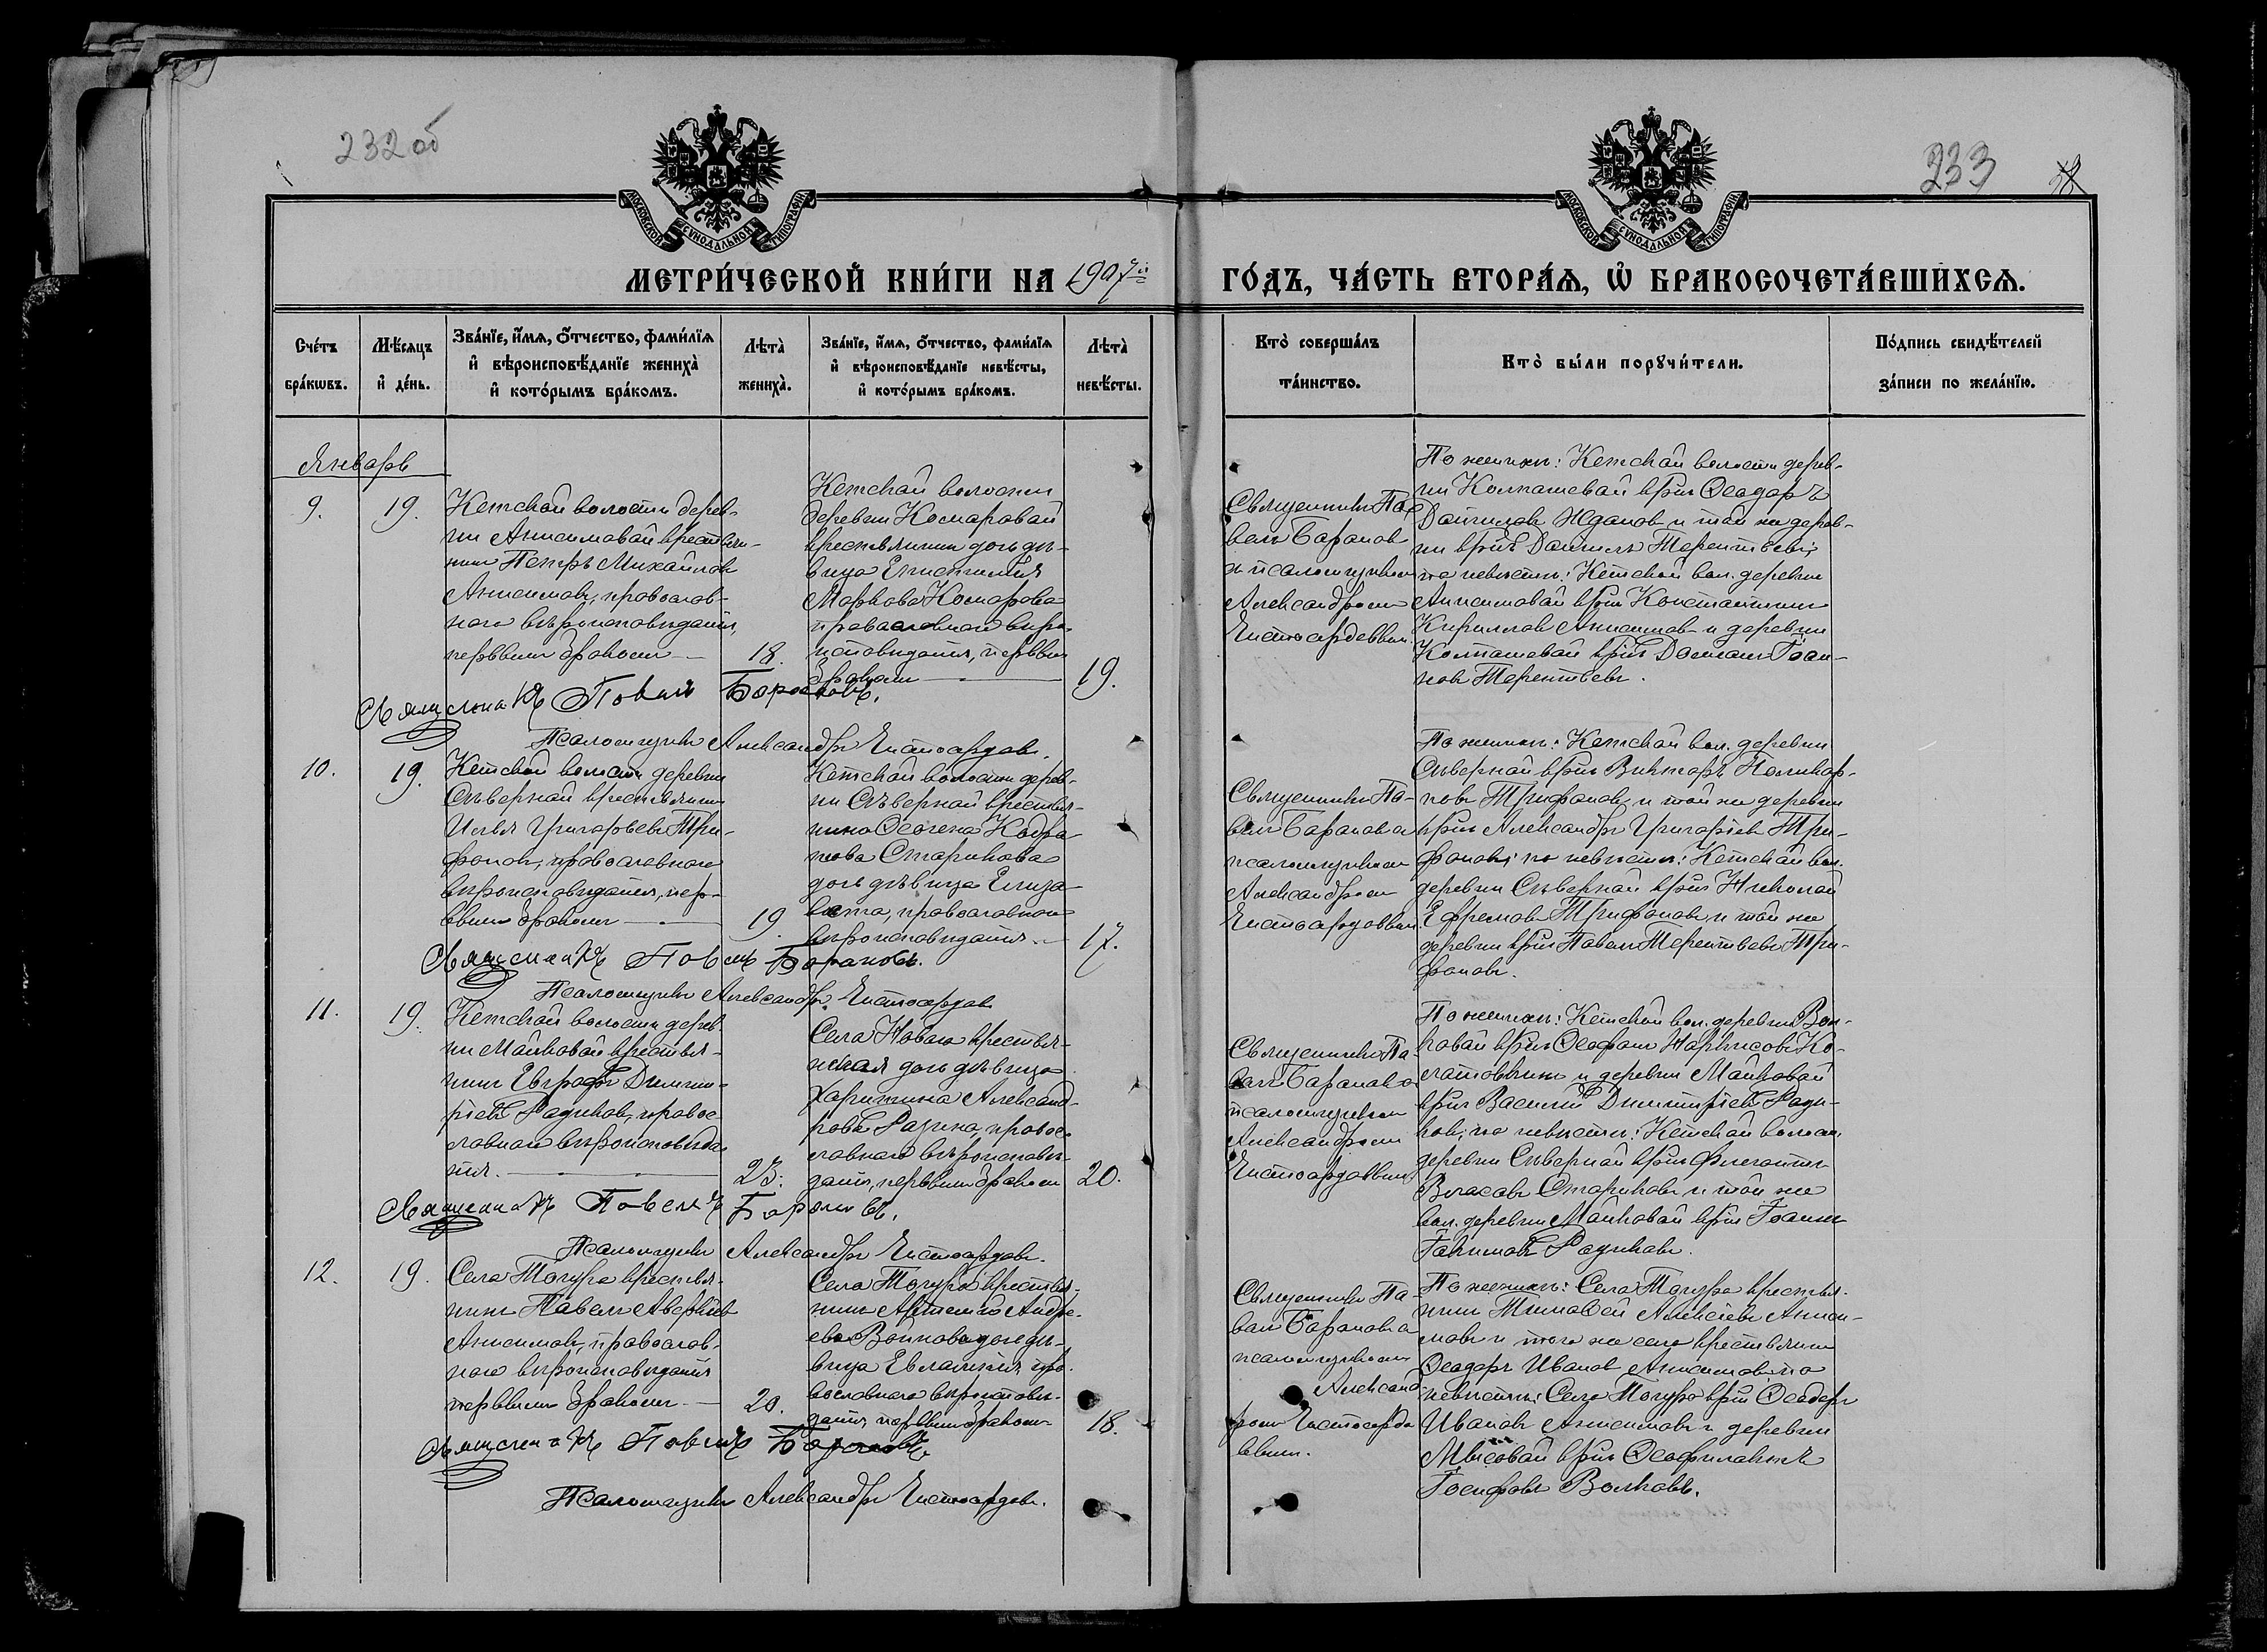 232 об
233
МОСКОВСКОЙ СѴНОДАЛЬНОЙ ТИПОГРАФІИ
МОСКОВСКОЙ СѴНОДАЛЬНОЙ ТИПОГРАФІИ
МЕТРИ́ЧЕСКОЙ КНИ́ГИ НА 1907й ГО́ДЪ, ЧА́СТЬ ВТОРА́Ѧ, Ѡ҆ БРАКОСОЧЕТА́ВШИХСѦ.
Сче́тъ бра́кѡвъ.
Мѣ́сяцъ и҆ де́нь.
Зва́нїе, и҆́мѧ, ѻ҆́тчество, фами́лїѧ и҆ вѣроисповѣ́данїе жениха̀ и҆ кото́рымъ бра́комъ.
Лѣта̀ жениха̀.
Зва́нїе, и҆́мѧ, ѻ҆́тчество, фами́лїѧ и҆ вѣроисповѣ́данїе невѣ́сты, и҆ кото́рымъ бра́комъ.
Лѣта̀ невѣ́сты.
Кто̀ соверша́лъ та́инство.
Кто̀ бы́ли порꙋчи́тели.
По́дпись свидѣ́телей за́писи по жела́нїю.
Январь
9.
19.
Кетской волости дерев-
ни Анисимовой крестьян-
инъ Петръ Михайловъ
Анисимовъ, православ-
наго вѣроисповѣданія,
первымъ бракомъ
18.
Кетской волости
деревни Комаровой
крестьянина дочь дѣ-
вица Епистимия
Маркова Комарова
православнаго вѣро-
исповѣданія, первым
бракомъ
19.
Священникъ Па-
велъ Баранов
с псаломщиком
Александромъ
Чистосердовым.
По женихѣ: Кетской волости дерев-
ни Колпашевой кр-нъ Ѳеодоръ
Данилов Жданов и той же дерев-
ни кр-нъ Даниилъ Терентьев;
по невѣстѣ: Кетской вол. деревни
Анисимовой кр-нъ Константинъ
Кириллов Анисимов и деревни
Колпашевой кр-нъ Іоан-
нов Терентьевъ.
Священникъ Павелъ Барановъ.
Псаломщикъ Александръ Чистосердовъ.
10.
19.
Кетской волости деревни
Сѣверной крестьянинъ
Илья Григорьевъ Три-
фонов, православнаго
вѣроисповѣданія, пер-
вымъ бракомъ
19.
Кетской волости дерев-
ни Сѣверной крестья-
нина
Старикова
дочь дѣвица Елиза-
вета, православнаго
вѣроисповѣданія.
17.
Священникъ Па-
велъ Баранов с
псаломщиком
Александромъ
Чистосердовым
По женихѣ: Кетской вол. деревни
Сѣверной кр-нъ Викторъ Поликар-
повъ Трифоновъ и той же деревни
кр-нъ Александръ Григорьев Три-
фоновъ; по невѣстѣ: Кетской вол.
деревни Сѣверной кр-нъ Николай
Ефремовъ Трифоновъ и той же
деревни кр-нъ Павелъ Терентьевъ Три-
фоновъ.
Священникъ Павелъ Барановъ.
Псаломщикъ Александръ Чистосердов
11.
19.
Кетской волости дерев-
ни Майковой крестья-
нинъ Евграфъ Димит-
ріевъ Родиков, правос-
лавнаго вѣроисповѣда-
нія.
23.
Села Новаго крестья-
нская дочь дѣвица
Харитина Александ-
рова Разина, правос-
лавнаго вѣроисповѣ-
данія, первымъ бракомъ
20.
Священникъ Па-
велъ Баранов с
псаломщиком
Александромъ
Чистосердовым
По женихѣ: Кетской вол. деревни Вол-
ковой кр-нъ Ѳеофанъ Наркисовъ
и деревни Майковой
кр-нъ Василій Димитріевъ Роди-
ков; по невѣстѣ: Кетской волост.
деревни Сѣверной кр-нъ Флегонтъ
Власовъ Стариковъ и той же
вол. деревни Майковой кр-нъ Іоаннъ
Родиковъ.
Священникъ Павелъ Барановъ.
Псаломщикъ Александръ Чистосердовъ.
12.
19.
Села Тогура крестья-
нинъ Павелъ Аверкіевъ
Анисимовъ, православ-
наго вѣроисповѣданія
первымъ бракомъ
20.
Села Тогура крестья-
нина Андре-
ева Волкова дочь дѣ-
вица Евлампия, пра-
вославнаго вѣроисповѣ-
данія первымъ бракомъ
18.
Священникъ Па-
велъ Баранов с
псаломщиком
Александ-
ромъ Чистосердо-
вым.
По женихѣ: Села Тогура крестья-
нинъ Тимофей Алексѣевъ Аниси-
мовъ и того же села крестьянинъ
Ѳеодоръ Иванов Анисимов; по
невѣстѣ: Села Тогура кр-нъ Ѳеодоръ
Ивановъ Анисимовъ и деревни
Мысовой кр-нъ Ѳеофилактъ
Іосифовъ Волковъ.
Священникъ Павелъ Барановъ
Псаломщикъ Александръ Чистосердовъ.